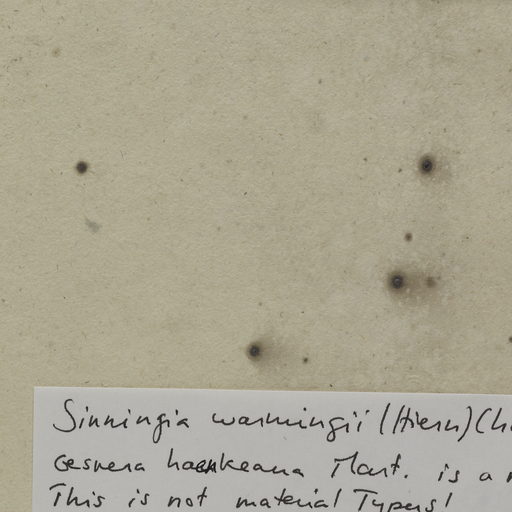 Sinningia warmingii (Hiern) Ch
Gesnera haenkeana Mart. is a n
This is not material Typus!